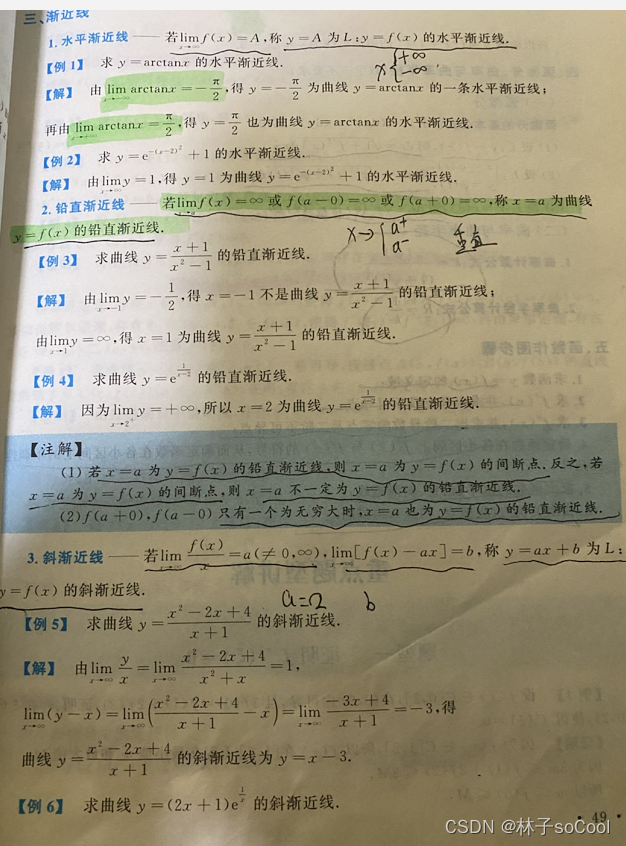 三、渐近线
1. 水平渐近线 —— 若lim f(x)=A,称 y=A 为 L:y=f(x) 的水平渐近线.
x→∞
【例 1】 求 y=arctanx 的水平渐近线.
x { +∞
-∞
【解】 由 lim arctanx=-π/2,得 y=-π/2 为曲线 y=arctanx 的一条水平渐近线;
再由 lim arctanx=π/2,得 y=π/2 也为曲线 y=arctanx 的水平渐近线.
【例 2】 求 y=e^{-(x-2)²}+1 的水平渐近线.
【解】 由lim y=1,得 y=1 为曲线 y=e^{-(x-2)²}+1 的水平渐近线.
x→∞
2. 铅直渐近线 —— 若lim f(x)=∞ 或 f(a-0)=∞ 或 f(a+0)=∞,称 x=a 为曲线
x→a
y=f(x) 的铅直渐近线.
x→ { a⁺
a⁻
垂直
【例 3】 求曲线 y=(x+1)/(x²-1) 的铅直渐近线.
【解】 由lim y=-1/2,得 x=-1 不是曲线 y=(x+1)/(x²-1) 的铅直渐近线;
x→-1
由lim y=∞,得 x=1 为曲线 y=(x+1)/(x²-1) 的铅直渐近线.
x→1
【例 4】 求曲线 y=e^{1/(x-2)} 的铅直渐近线.
【解】 因为lim y=+∞,所以 x=2 为曲线 y=e^{1/(x-2)} 的铅直渐近线.
x→2⁺
【注解】
(1) 若 x=a 为 y=f(x) 的铅直渐近线,则 x=a 为 y=f(x) 的间断点.反之,若
x=a 为 y=f(x) 的间断点,则 x=a 不一定为 y=f(x) 的铅直渐近线.
(2) f(a+0),f(a-0) 只有一个为无穷大时,x=a 也为 y=f(x) 的铅直渐近线.
3. 斜渐近线 —— 若lim f(x)/x=a(≠0,∞),lim[f(x)-ax]=b,称 y=ax+b 为 L:
x→∞ x→∞
y=f(x) 的斜渐近线.
b
【例 5】 求曲线 y=(x²-2x+4)/(x+1) 的斜渐近线.
【解】 由lim y/x=lim (x²-2x+4)/(x²+x)=1,
x→∞ x→∞
lim(y-x)=lim((x²-2x+4)/(x+1)-x)=lim (-3x+4)/(x+1)=-3,得
x→∞ x→∞ x→∞
曲线 y=(x²-2x+4)/(x+1) 的斜渐近线为 y=x-3.
【例 6】 求曲线 y=(2x+1)e^{1/x} 的斜渐近线.
· 49 ·
CSDN @林子soCool